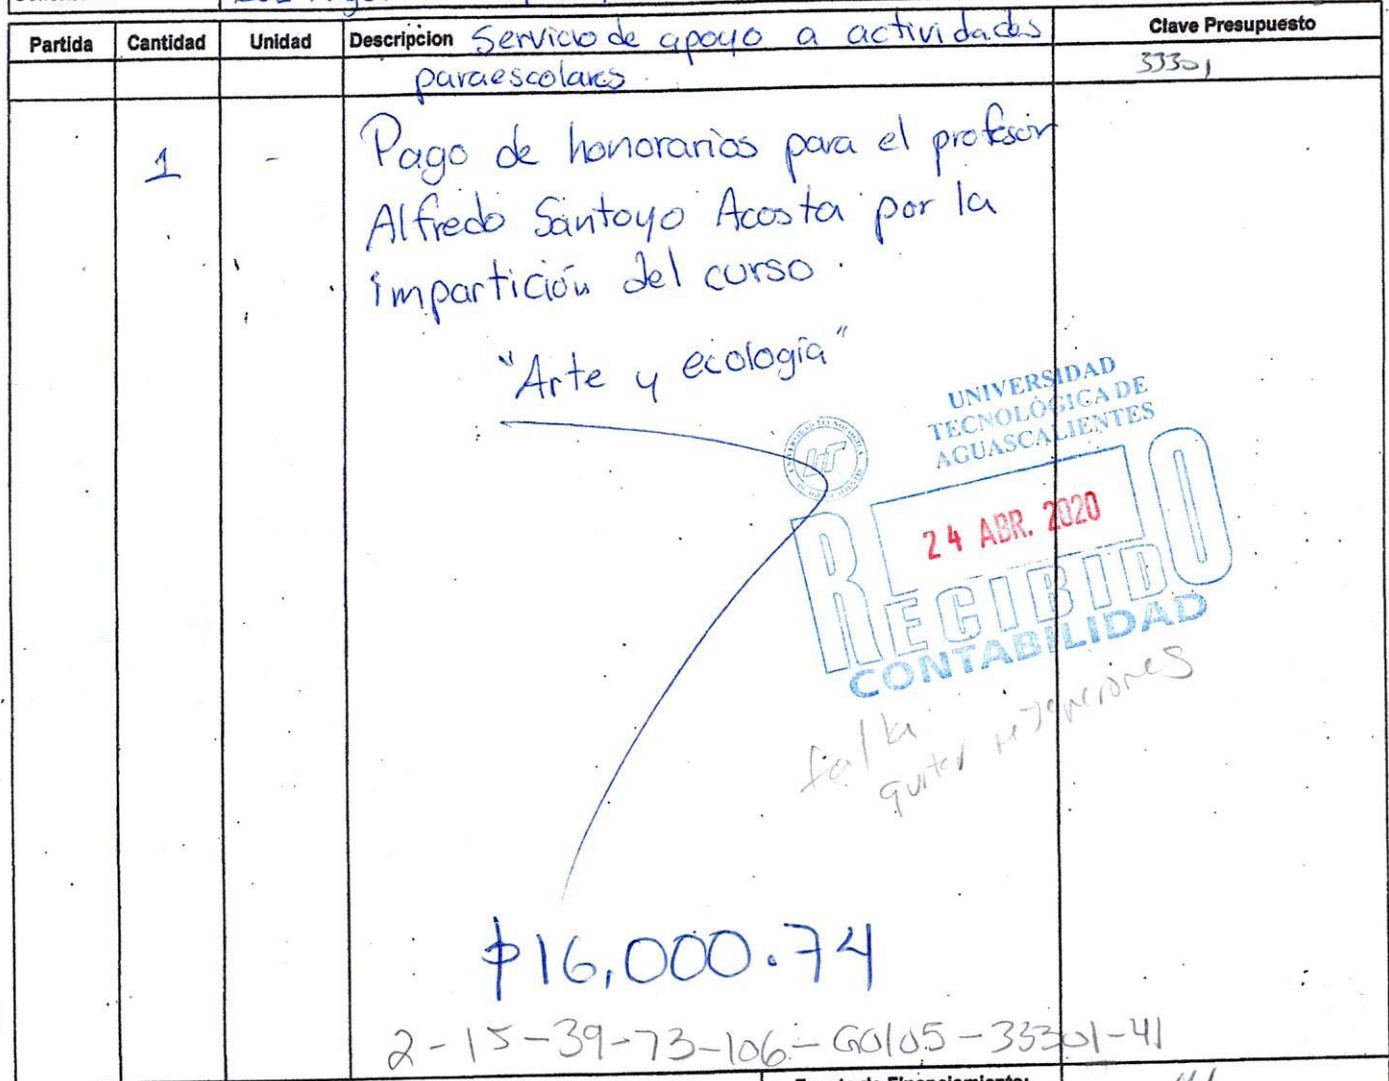 Partida Cantidad Unidad Descripcion Servicio de apoyo a actividades Clave Presupuesto
paraescolares. 33301
1 - Pago de honorarios para el profesor
Alfredo Santoyo Acosta por la
impartición del curso
"Arte y ecología"
UNIVERSIDAD
TECNOLÓGICA DE
AGUASCALIENTES
UT
24 ABR. 2020
RECIBIDO
CONTABILIDAD
falta
requisiciones
$16,000.74
2-15-39-73-106-G0105-33301-41
Fuente de Financiamiento: 41